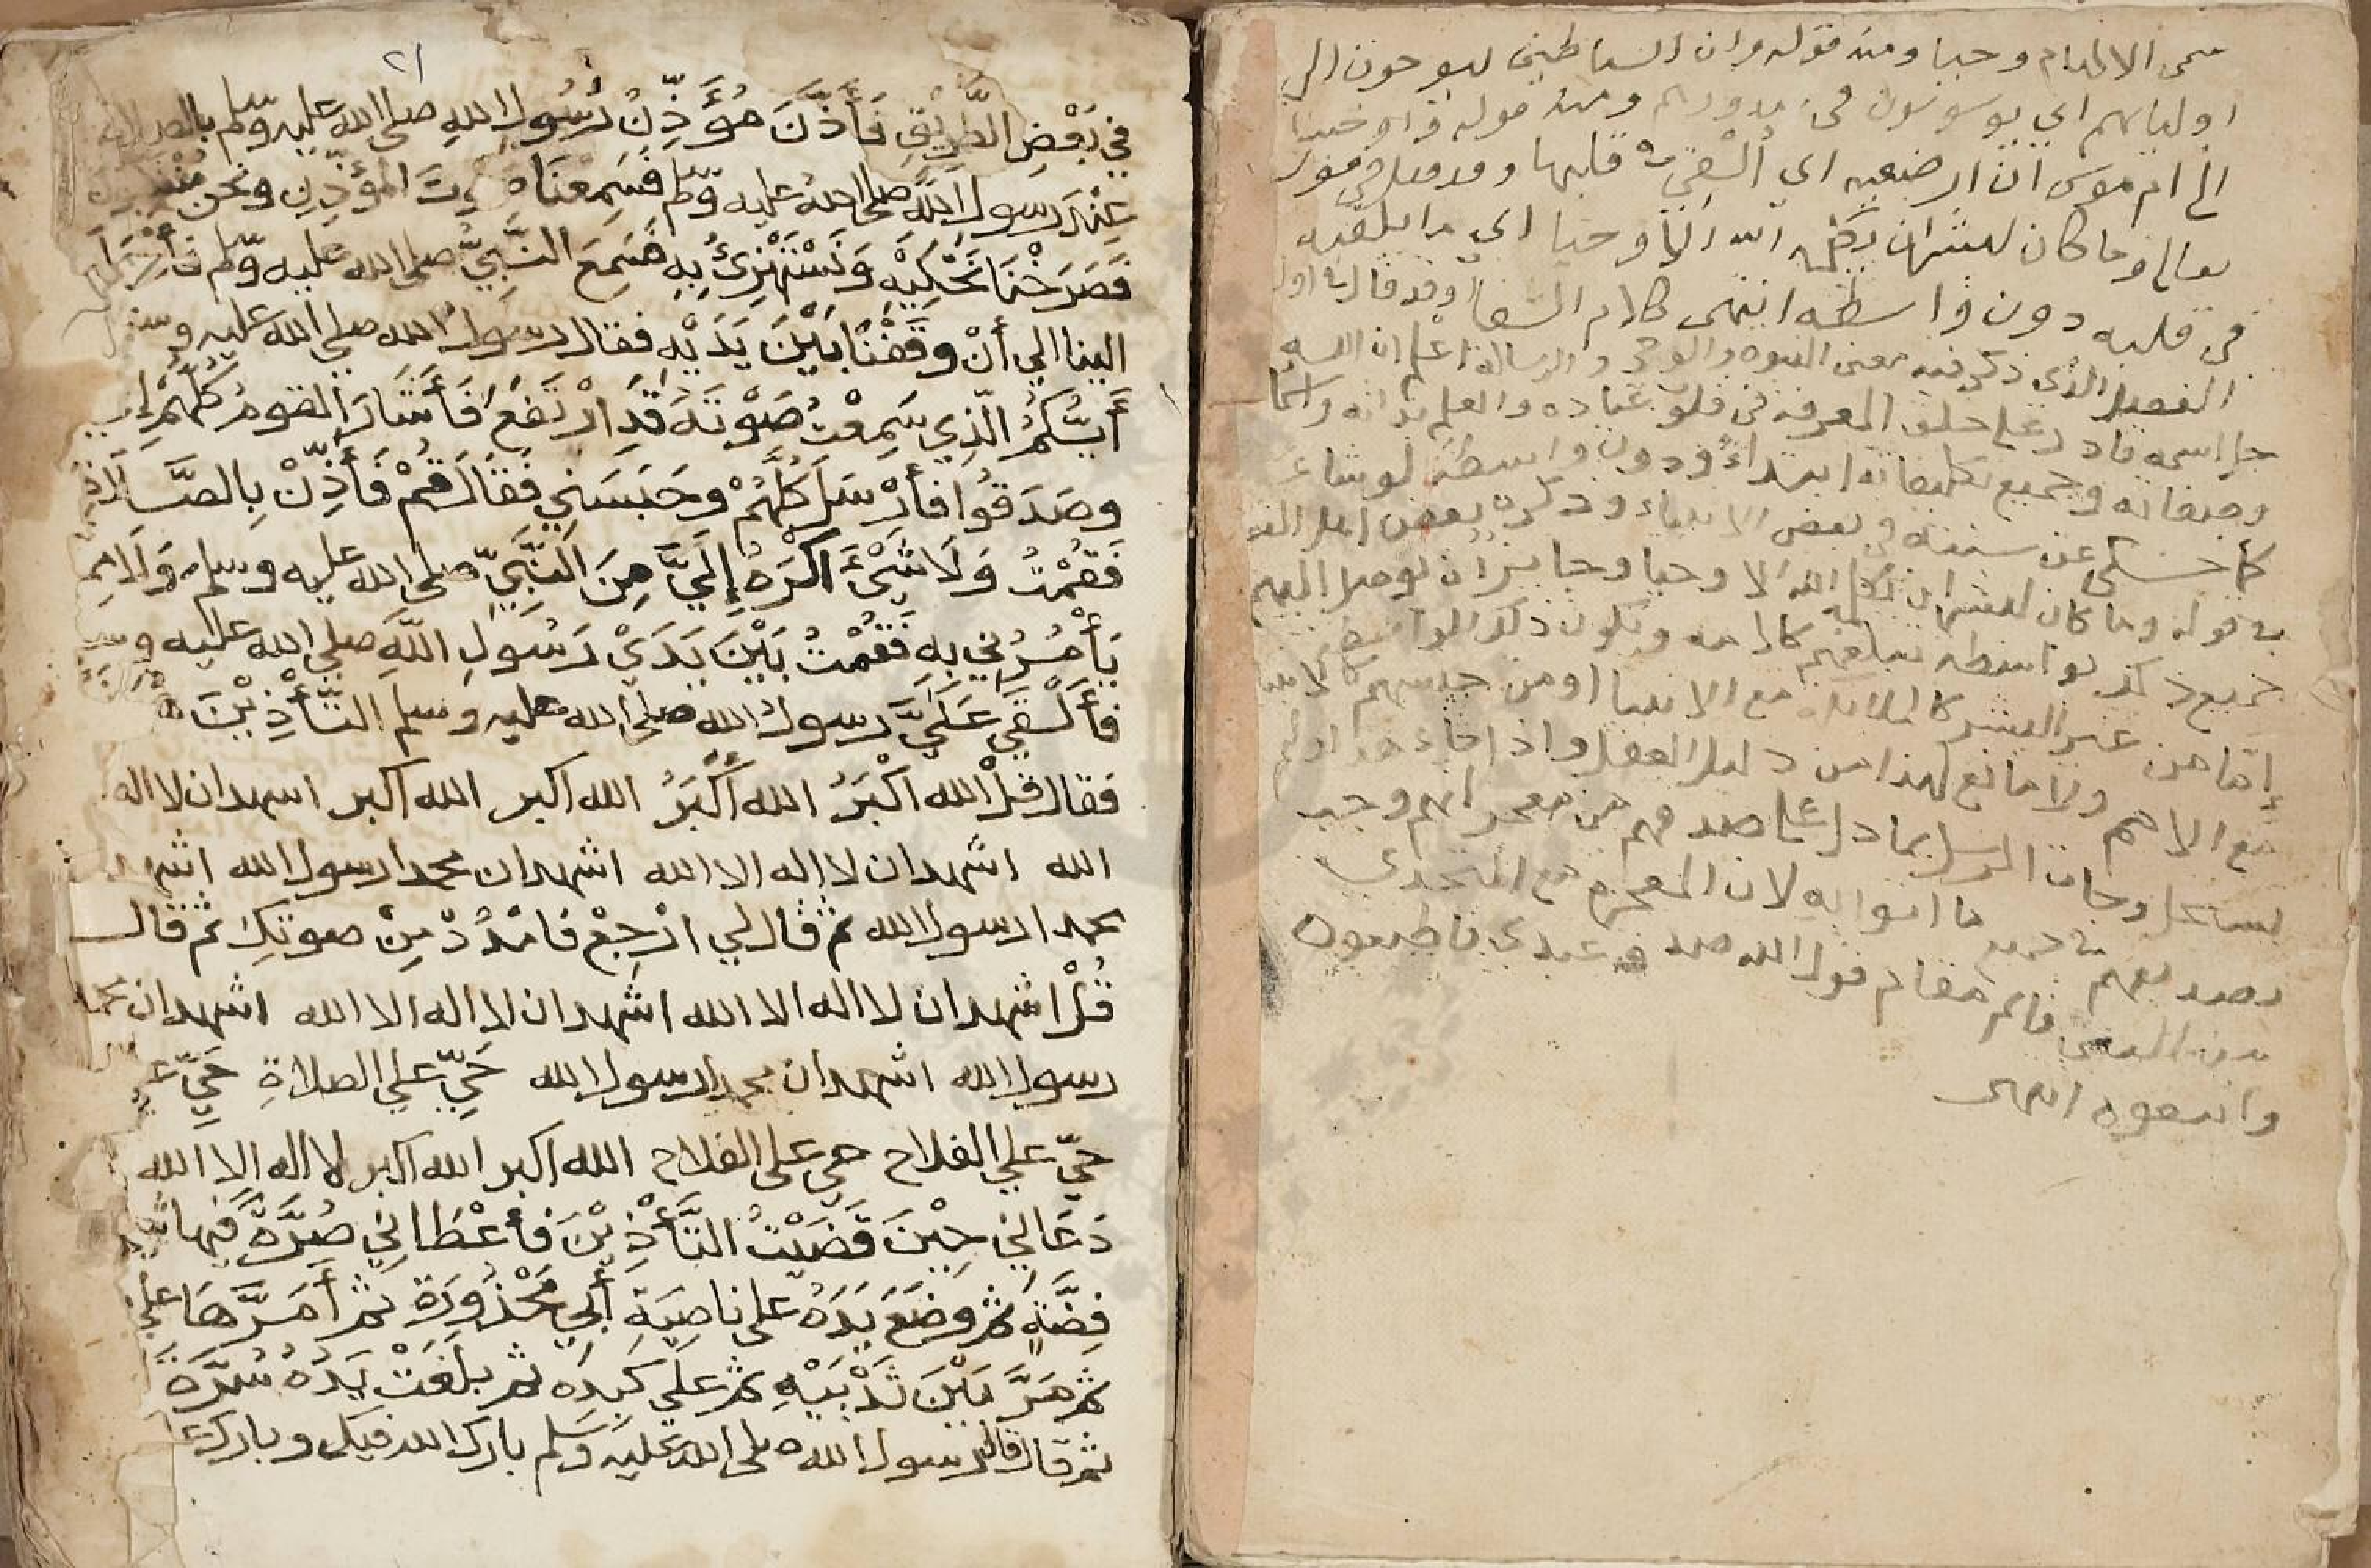 سمى الالهام وحيا ومنه قوله وان الشياطين ليوحون الى
اوليائهم اي يوسوسون في صدورهم ومنه قوله واوحينا
الى ام موسى ان ارضعيه اي ألقي في قلبها وقد قيل في قوله
تعالى وما كان لبشر ان يكلمه الله الا وحيا اي ما يلقيه
في قلبه دون واسطة انتهى كلام الشفا وقد قال في اول
الفصل الذي ذكر فيه معنى النبوة والوحي والرسالة اعلم ان الله
جل اسمه قادر على خلق المعرفة في قلوب عباده والعلم بذاته واسما
وصفاته وجميع تكليفاته ابتداءً ودون واسطة لو شاء
كما حكى عن سنته في بعض الانبياء وذكره بعض اهل التف
في قوله وما كان لبشر ان يكلمه الله الا وحيا وجائز ان يوصل اليهم
جميع ذلك بواسطة تبلغهم كلامه وتكون ذلك الواسطة
إمّا من غير البشر كالملائكة مع الانبيا او من جنسهم كالانبيا
مع الامم ولا مانع لهذا من دليل العقل واذا جاز هذا ولم
يستحل وجات الرسل بما دل على صدقهم من معجزاتهم وجب
تصديقهم في جميع ما اتوا به لان المعجزة مع التحدي
من النبي قائم مقام قول الله صدق عبدي فاطيعوه
واتبعوه انتهى
٢١
في بَعْضِ الطَّرِيْقِ فَأَذَّنَ مُؤَذِّنُ رَسُولِ اللهِ صلى الله عليه وسلم بالصلاة
عِنْدَ رسول اللهِ صلى الله عليه وسلم فَسَمِعْنَا صوتَ المؤذّنِ ونحن
فَصَرَخْنَا نَحْكِيْهِ وَنَسْتَهْزِئُ بِهِ فَسَمِعَ النَّبِيُّ صلى الله عليه وسلم فأَرْسَلَ
الينا الي أنْ وقَفْنَا بَيْنَ يَدَيْهِ فقال رسول الله صلى الله عليه وسـ
أَيُّكمُ الّذِي سَمِعْتُ صَوْتَهُ قَدِ ارْتَفَعَ فَأَشَارَ القومُ كُلّهُمْ إلي
وصَدَقُوا فأرْسَلَ كُلَّهُمْ وحَبَسَنِي فَقَالَ قُمْ فَأَذِّنْ بِالصَّلَاةِ
فَقُمْتُ وَلَا شَيْءَ أكْرَهُ إِلَيَّ مِنَ النَّبِيِّ صلى الله عليه وسلم وَلَا مِمـ
يَأْمُرُنِي بِهِ فَقُمْتُ بَيْنَ يَدَيْ رَسُولِ اللَّهِ صلى الله عليه وسـ
فأَلْقَي عَلَيَّ رسولُ الله صلى الله عليه وسلم التّأْذِيْنَ
فقال قُلْ الله اكْبَرُ الله أَكْبَرُ الله اكبر الله اكبر اسهد ان لا اله
الله اشهد ان لا اله الا الله اشهد ان محمدا رسول الله اشهـ
محمدا رسول الله ثم قال لي ارْجِعْ فَامْدُدْ مِنْ صوتِكَ ثم قال
قُلْ اشهد ان لا اله الا الله اشهد ان لا اله الا الله اشهد ان محمـ
رسول الله اشهد ان محمدا رسول الله حَيّ علي الصلاةِ حَيّ علي
حَيّ علي الفلاح حي على الفلاح الله اكبر الله اكبر لا اله الا الله
دَعَانِي حِيْنَ قَضَيْتُ التَّأْذِيْنَ فأعْطَانِي صُرَّةً فيها
فِضَّةٍ ثم وضَعَ يَدَهُ على ناصِيَةِ أَبِي مَحْذُورَةَ ثم أَمَرَّهَا علي
ثم مَرَّ بَيْنَ ثَدْيَيْهِ ثم علي كَبِدِهِ ثم بلَغَتْ يَدُهُ سُرَّةَ
ثم قال قال رسول الله صلى الله عليه وسلم بارك الله فيك وبارك عـ